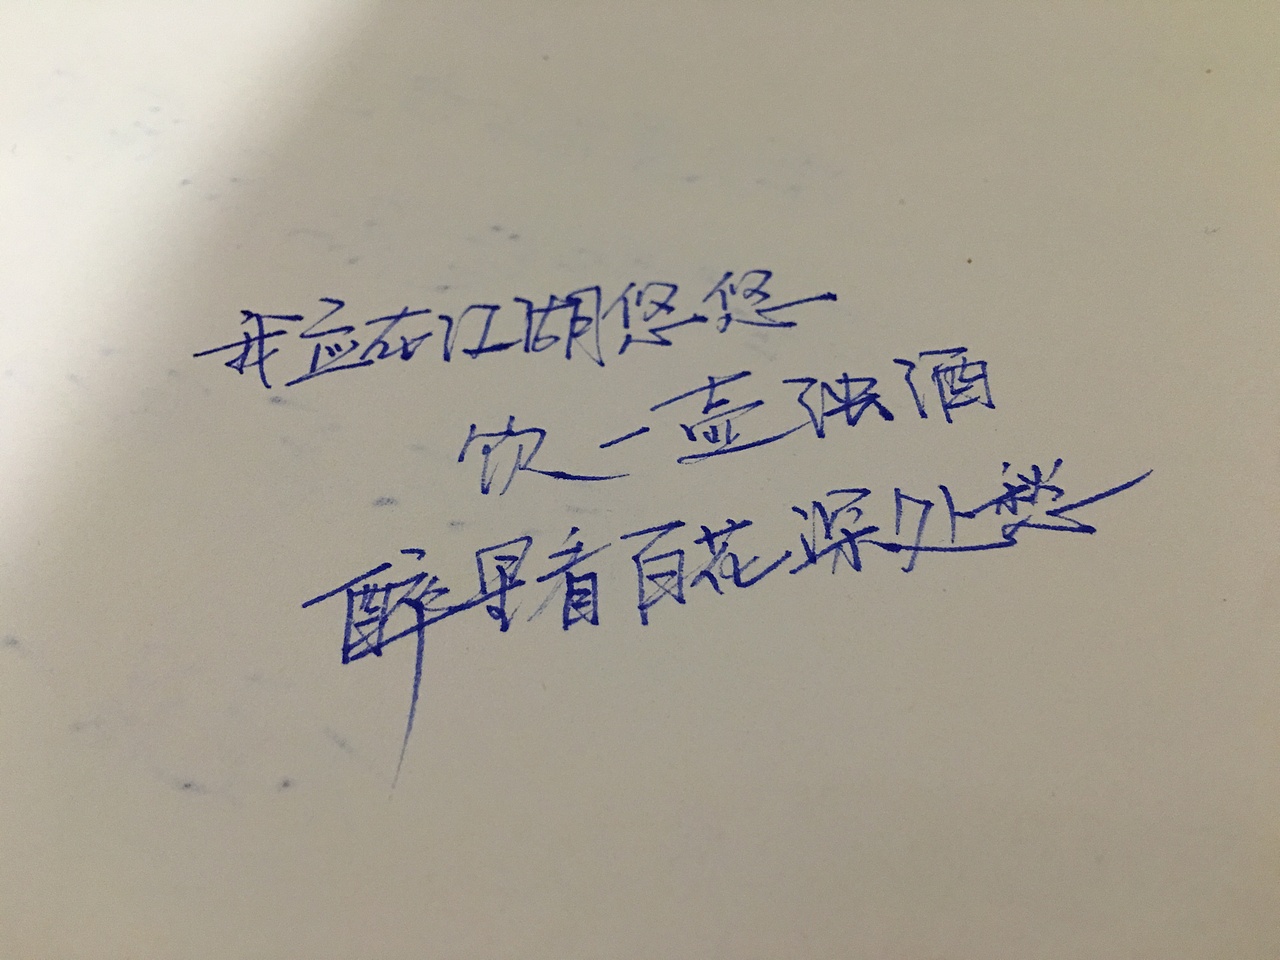 我应在江湖悠悠
饮一壶浊酒
醉里看百花深处愁